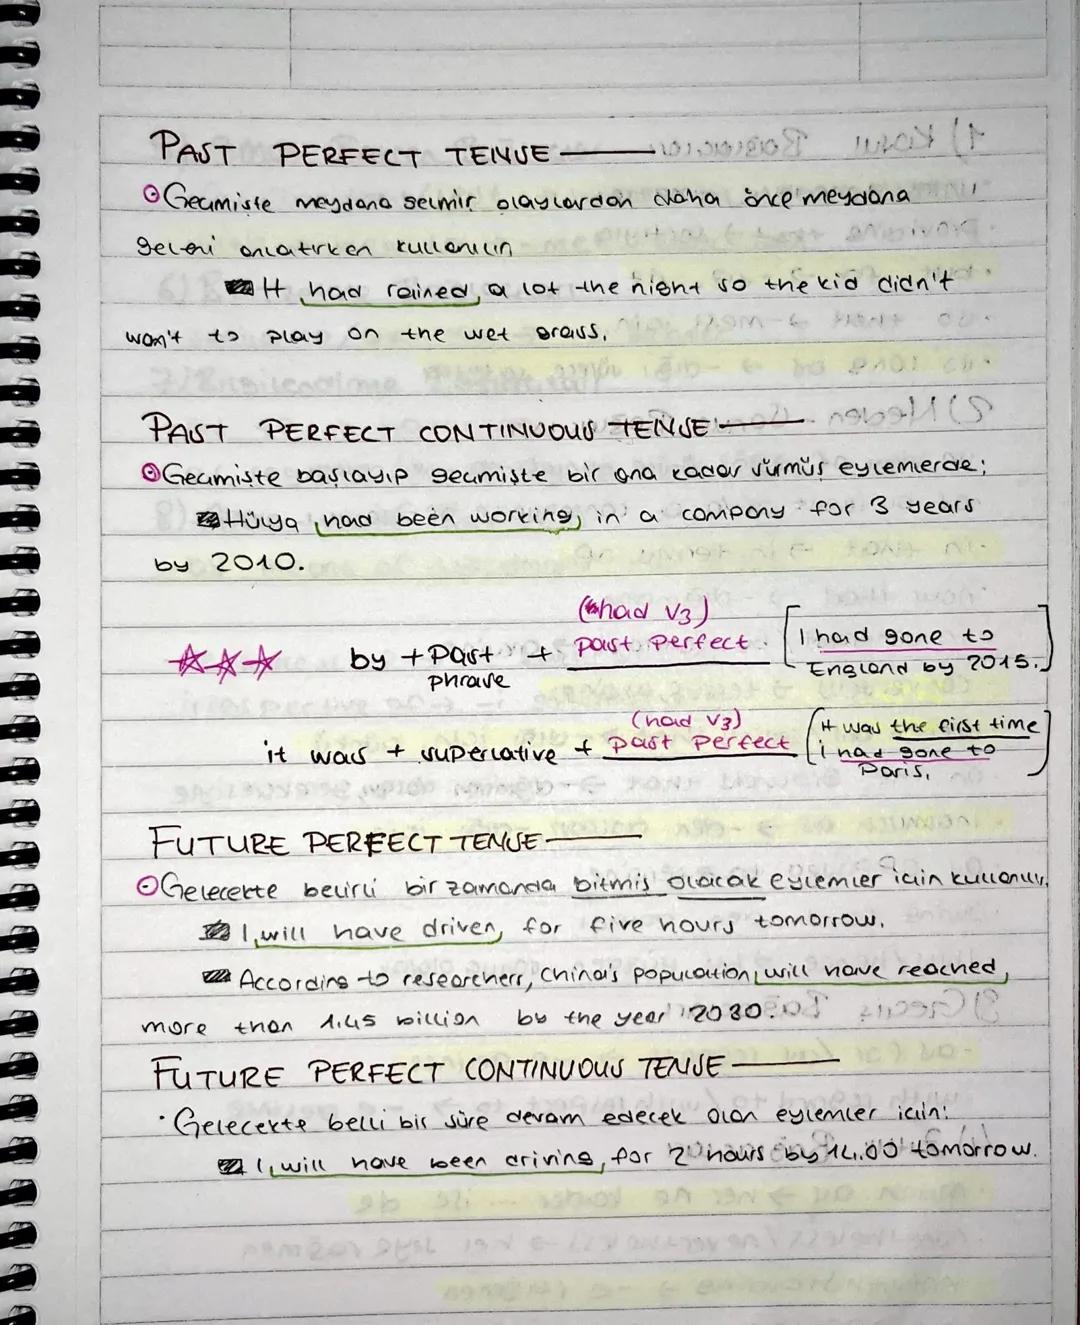 PAST PERFECT TENSE
Geçmişte meydana gelmiş olaylardan daha önce meydana
geleni anlatırken kullanılır
It had rained a lot the night so the kid didn't
want to play on the wet grass.
PAST PERFECT CONTINUOUS TENSE
Geçmişte başlayıp geçmişte bir ana kadar sürmüş eylemlerde;
Hülya had been working in a company for 3 years
by 2010.
(had V3)
by + past phrase + past perfect [I had gone to England by 2015.]
(had V3)
it was + superlative + past perfect [It was the first time i had gone to Paris.]
FUTURE PERFECT TENSE
Gelecekte belirli bir zamanda bitmiş olacak eylemler için kullanılır.
I will have driven for five hours tomorrow.
According to researchers, China's population will have reached
more than 1.45 billion by the year 2030.
FUTURE PERFECT CONTINUOUS TENSE
Gelecekte belli bir süre devam edecek olan eylemler için:
I will have been driving for 2 hours by 14.00 tomorrow.